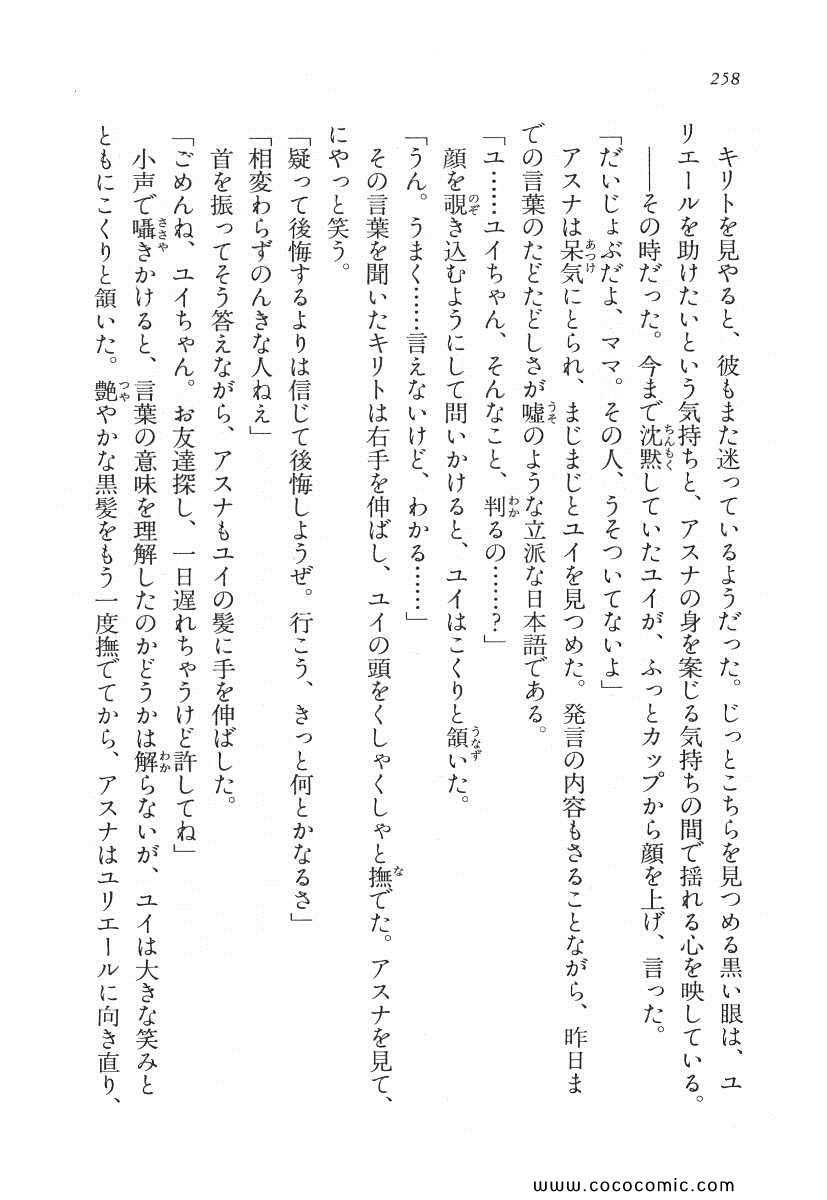 258
キリトを見やると、彼もまた迷っているようだった。じっとこちらを見つめる黒い眼は、ユ
リエールを助けたいという気持ちと、アスナの身を案じる気持ちの間で揺れる心を映している。
――その時だった。今まで沈黙していたユイが、ふっとカップから顔を上げ、言った。
「だいじょぶだよ、ママ。その人、うそついてないよ」
アスナは呆気にとられ、まじまじとユイを見つめた。発言の内容もさることながら、昨日ま
での言葉のたどたどしさが嘘のような立派な日本語である。
「ユ……ユイちゃん、そんなこと、判るの……?」
顔を覗き込むようにして問いかけると、ユイはこくりと頷いた。
「うん。うまく……言えないけど、わかる……」
その言葉を聞いたキリトは右手を伸ばし、ユイの頭をくしゃくしゃと撫でた。アスナを見て、
にやっと笑う。
「疑って後悔するよりは信じて後悔しようぜ。行こう、きっと何とかなるさ」
「相変わらずのんきな人ねえ」
首を振ってそう答えながら、アスナもユイの髪に手を伸ばした。
「ごめんね、ユイちゃん。お友達探し、一日遅れちゃうけど許してね」
小声で囁きかけると、言葉の意味を理解したのかどうかは解らないが、ユイは大きな笑みと
ともにこくりと頷いた。艶やかな黒髪をもう一度撫でてから、アスナはユリエールに向き直り、
www.cococomic.com